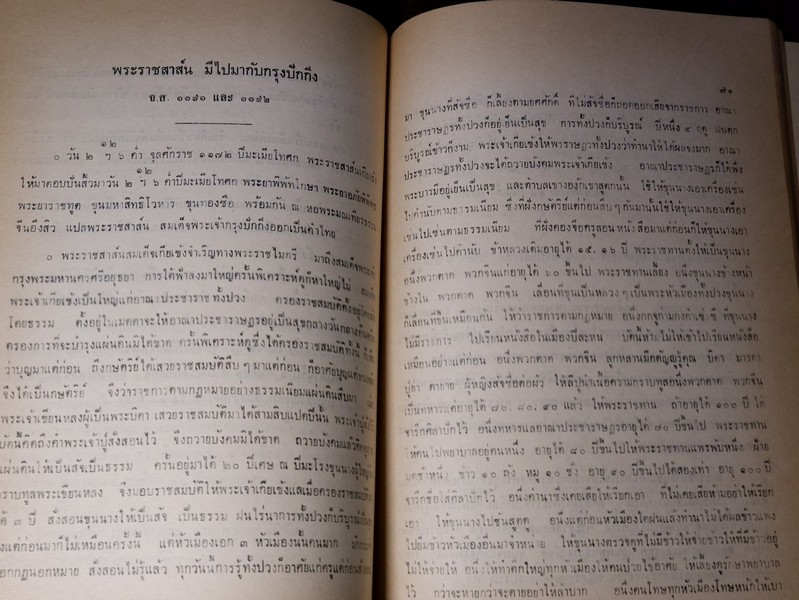 พระราชสาส์น มีไปมากับกรุงปักกิ่ง
จ.ศ. ๑๑๗๑ และ ๑๑๗๒
๑๒
๐ วัน ๒ ฯ ๖ ค่ำ จุลศักราช ๑๑๗๒ ปีมะเมียโทศก พระราชสาส์น
๑๒
ให้มาตอบนั้นแล้วมา วัน ๒ ฯ ๖ ค่ำปีมะเมียโทศก พระยาพิพัทโกษา
พระยาราชทูต ขุนมหาสิทธิโวหาร ขุนทองซื่อ พร้อมกัน ณ หอพระมณเทียรธรรม
จีนอึ้งสิว แปลพระราชสาส์น สมเด็จพระเจ้ากรุงปักกิ่งออกเป็นคำไทย
๐ พระราชสาส์นสมเด็จเกียเข้งจำเริญทางพระราชไมตรี มาถึงสมเด็จพระเจ้า
กรุงพระมหานครศรีอยุธยา การได้ฟ้าลงมาใหญ่ครั้นพิเคราะห์ดูก็หาใหญ่ไม่
พระเจ้าเกียเข้งเป็นใหญ่แก่อาณาประชาราษฎรทั้งปวง ครองราชสมบัติ
โดยธรรม ตั้งอยู่ในเมตตาจะให้อาณาประชาราษฎรอยู่เป็นสุขกลางวันกลางคืน
ครองการที่จะบำรุงแผ่นดินมิได้ขาด ครั้นพิเคราะห์ดูซึ่งได้ครองราชสมบัติทั้งนี้
ว่าบุญมาแต่ก่อน ถึงกษัตริย์ได้เสวยราชสมบัติสืบ ๆ มาแต่ก่อน ก็อาศัยบุญ
จึงได้เป็นกษัตริย์ จึงว่าราชการตามกฎหมายอย่างธรรมเนียมแผ่นดินสืบมา
พระเจ้าเขียนหลงผู้เป็นพระบิดา เสวยราชสมบัติมาได้สามสิบแปดปีนั้น
บัดนี้คิดถึงคำพระเจ้าปู่สั่งสอนไว้ จึงถวายบังคมมิได้ขาด ถวายบังคมแล้ว
แผ่นดินให้เป็นสัจเป็นธรรม ครั้นอยู่มาได้ ๒๐ ปีเศษ ณ ปีมะโรงขุนนางผู้ใหญ่
กราบทูลพระเขียนหลง จึงมอบราชสมบัติให้พระเจ้าเกียเข้ง
ได้ ๓ ปี สั่งสอนขุนนางให้เป็นสัจ เป็นธรรม ฝนไร่นาการทั้งปวงก็บริบูรณ์
แต่ก่อนมาก็ไม่เหมือนครั้งนี้ แต่หัวเมืองเอก ๓ หัวเมืองนั้นคนมาก
นอกกฎนอกหมาย สั่งสอนไม่รู้แล้ว ทุกวันนี้การรู้ทั้งปวงก็อาศัยแก่ครูแต่ก่อน
๗๑
มา ขุนนางที่สัจซื่อ ก็เลี้ยงตามยศศักดิ์ ที่ไม่สัจซื่อก็ถอดออกเสียจากราชการ อาณา
ประชาราษฎรทั้งปวงก็อยู่เย็นเป็นสุข การทั้งปวงก็บริบูรณ์ ปีหนึ่ง ๔ ฤดู ฝนตก
บริบูรณ์ข้าวก็งาม พระเจ้าเกียเข้งให้พระราษฎรทั้งปวงว่าทำนาให้ได้ผลจงมาก อาณา
ประชาราษฎรทั้งปวงจะได้ถวายบังคมพระเจ้าเกียเข้ง อาณาประชาราษฎรก็ได้พึ่ง
พระบารมีอยู่เย็นเป็นสุข และตำบลเขาองค์เขาสุดกนั้น ใช้ให้ขุนนางเอาเครื่องเซ่น
ไปคำนับตามธรรมเนียม ซึ่งที่ฝังกษัตริย์แต่ก่อนสืบ ๆ กันมานั้นใช้ให้ขุนนางเอาเครื่อง
เซ่นไปเซ่นตามธรรมเนียม ที่ฝังคองจือครูสอน หนังสือมาแต่ก่อนก็ให้ขุนนางเอา
เครื่องเซ่นไปคำนับ ข้าหลวงเดิมอายุได้ ๑๕, ๑๖ ปี พระราชทานตั้งให้เป็นขุนนาง
อนึ่งพวกตาด พวกจีนแก่อายุได้ ๖๐ ขึ้นไป พระราชทานเลี้ยง อนึ่งขุนนางข้างหน้า
ข้างใน พวกตาด พวกจีน เลื่อนที่ขุนเป็นหลวง ๆ เป็นพระหัวเมืองทั้งปวงขุนนาง
ก็เลื่อนที่ขึ้นเหมือนกัน ให้ว่าราชการตามกฎหมาย
ไม่มีราชการ ไปเรียนหนังสือในเมืองปีละหน บัดนี้ห้ามไม่ให้เข้าไปเรียนหนังสือ
เหมือนอย่างแต่ก่อน อนึ่งพวกตาด พวกจีน ลูกหลานมีกตัญญูรู้คุณ บิดา มารดา
ปู่ย่า ตายาย ผู้หญิงสัจซื่อต่อผัว ให้สืบนำเนื้อความกราบทูลอนึ่งพวกตาด พวกจีน
เป็นทหารแต่อายุได้ ๗๐, ๘๐, ๙๐ แล้ว ให้พระราชทาน ถ้าอายุได้ ๑๐๐ ปี ได้
จารึกศิลาปักไว้ อนึ่งทหารแลอาณาประชาราษฎรอายุได้ ๗๐ ปีขึ้นไป พระราชทาน
ให้คนไปพยาบาลอยู่คนหนึ่ง อายุได้ ๘๐ ปีขึ้นไปให้พระราชทานแพรพับหนึ่ง ฝ้าย
ข้าว ๑๐ ถัง หมู ๑๐ ชั่ง อายุ ๙๐ ปีขึ้นไปได้สองเท่า อายุ ๑๐๐ ปี
จารึกชื่อใส่ศิลาปักไว้ อนึ่งค่านาซึ่งเคยเสียให้เรียกเอา ที่ไม่เคยเสียห้ามอย่าให้เรียก
เอา ให้ขุนนางไปชันสูตด อนึ่งแต่ก่อนหัวเมืองใดฝนแล้งทำนาไม่ได้ผลข้าวแพง
ไปยืมข้าวหัวเมืองอื่นมาจำหน่าย ให้ขุนนางตรวจดูที่ไม่มีข้าวให้จ่ายข้าวให้ที่มีข้าวอยู่
ไม่ให้จ่ายให้ อนึ่งให้ทำตึกใหญ่ทุกหัวเมืองให้คนป่วยไข้อาศัย ให้เลี้ยงดูรักษาพยาบาล
ไว้ กว่าจะหายกว่าจะตายอย่าให้ลำบาก อนึ่งคนโทษทุกหัวเมืองโทษหนักให้เบา